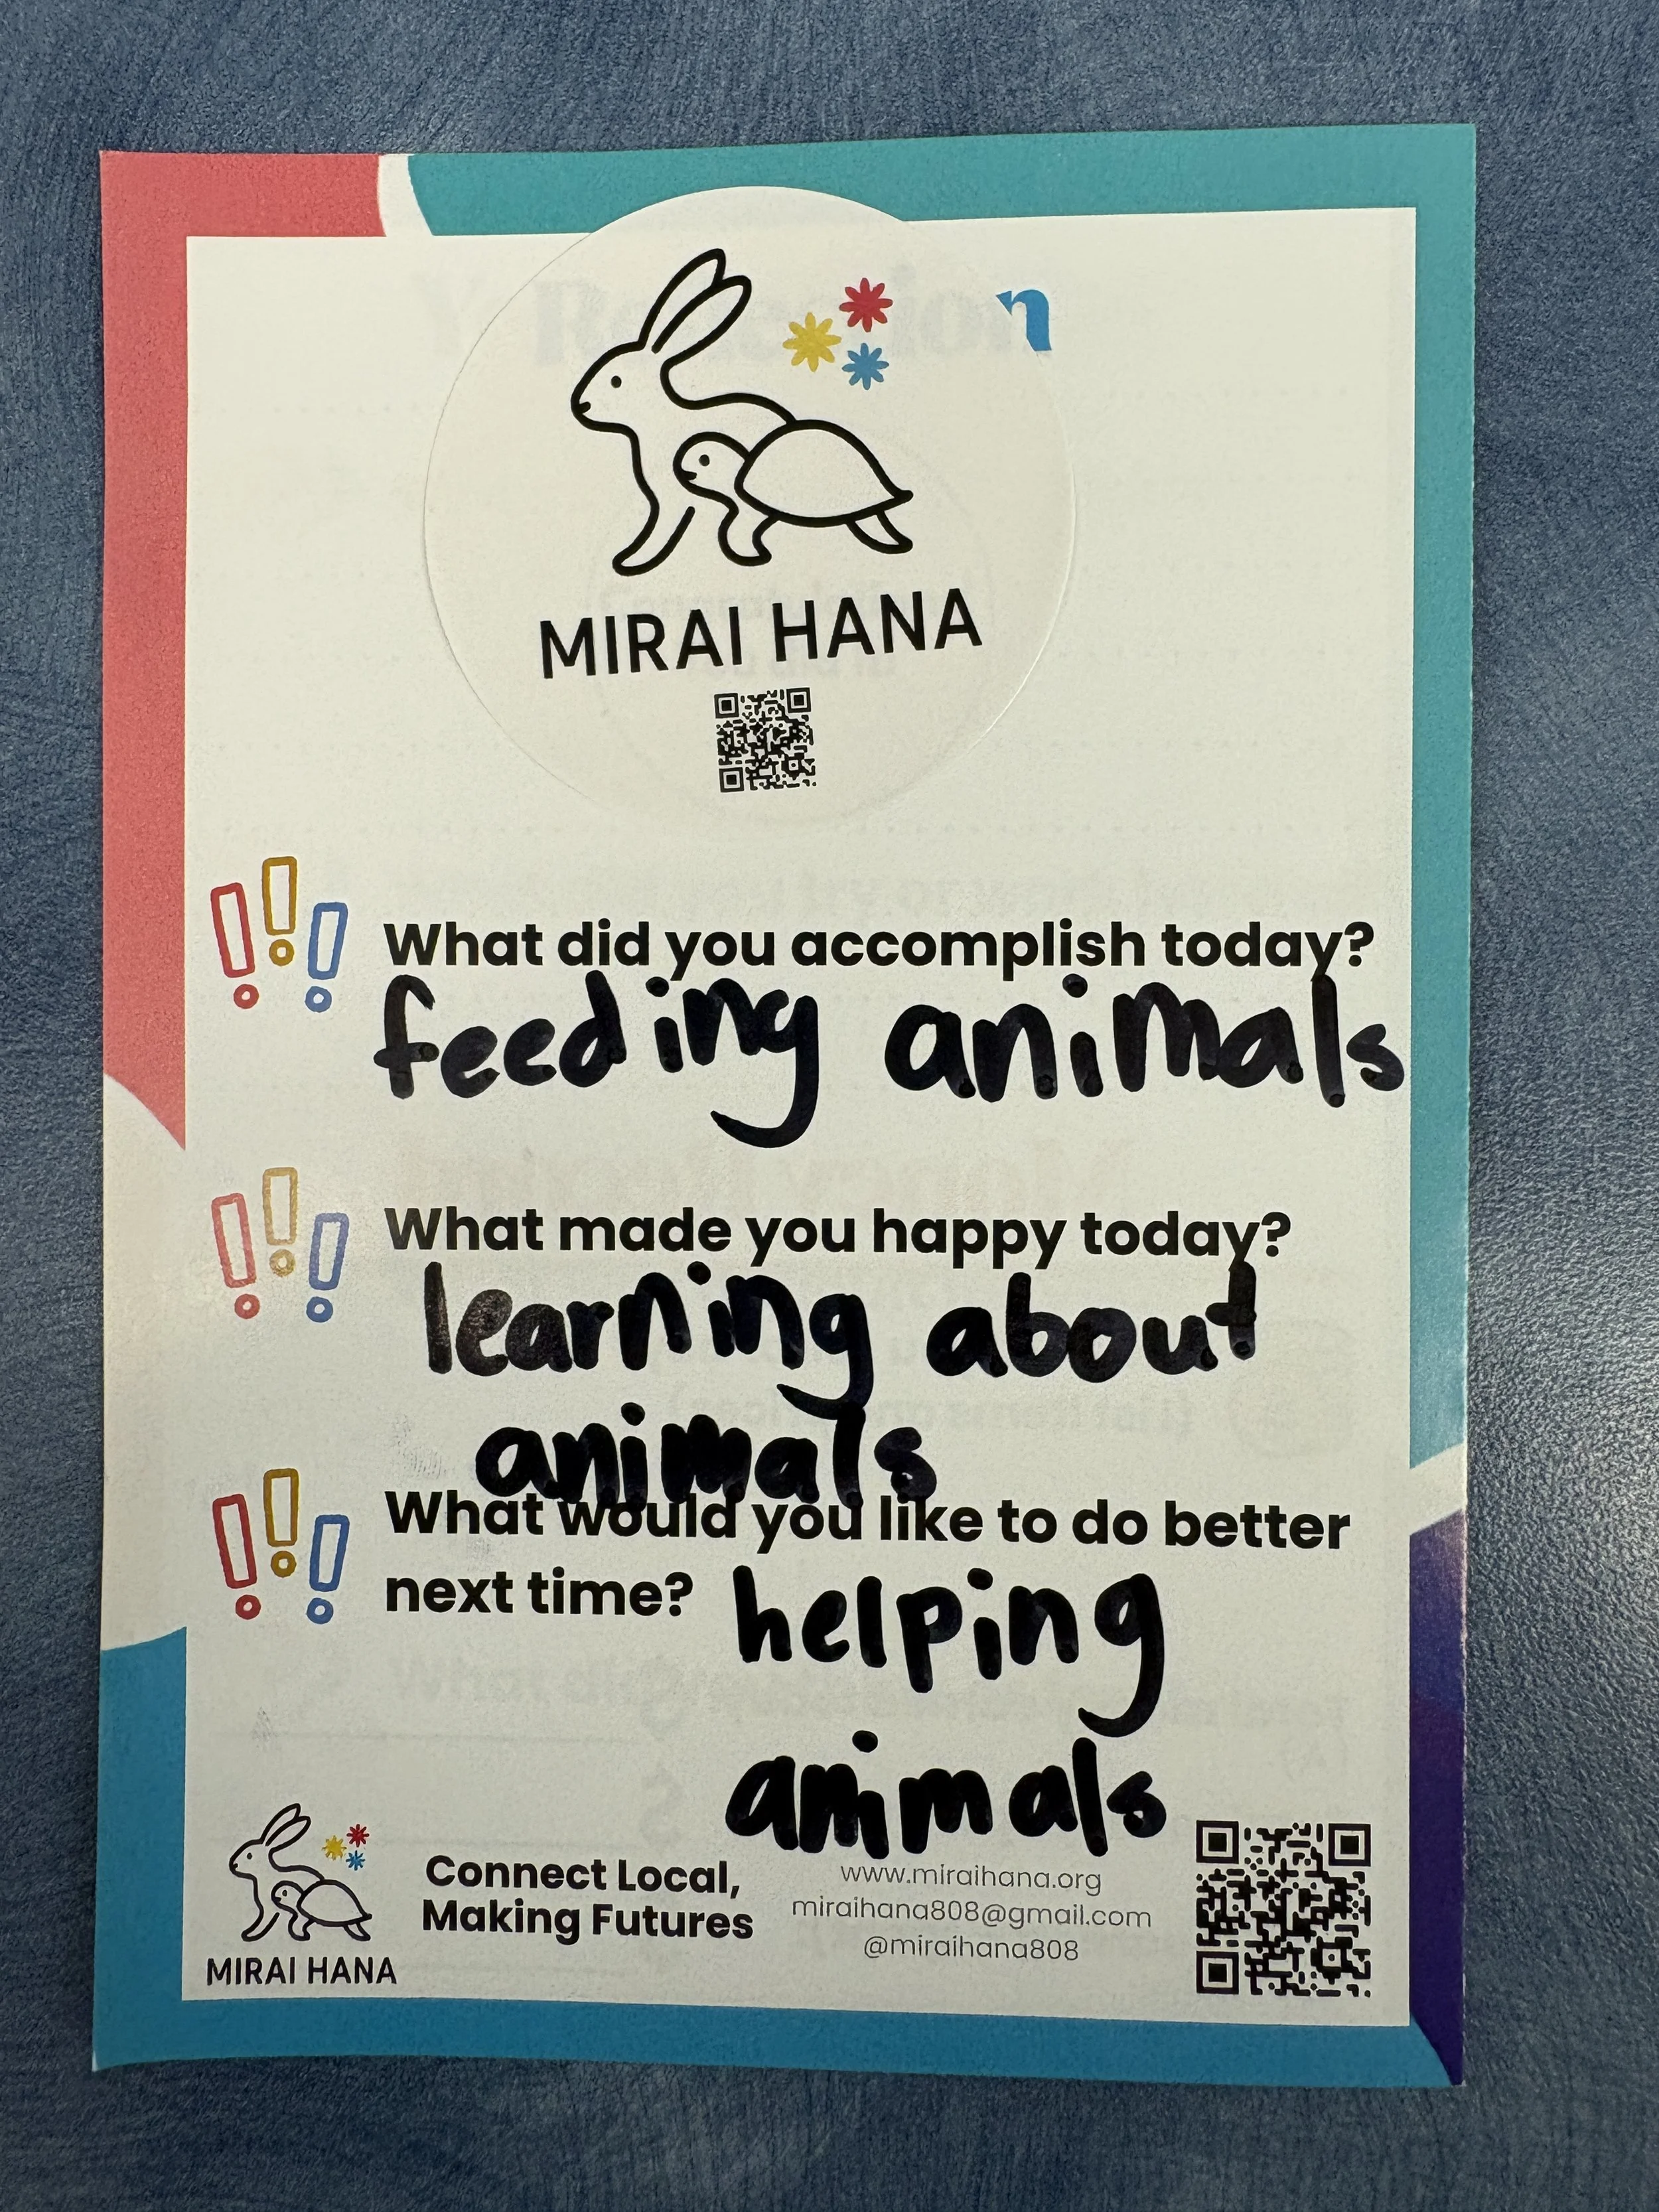 n
MIRAI HANA
What did you accomplish today?
feeding animals
What made you happy today?
learning about
animals
What would you like to do better
next time?
helping
animals
MIRAI HANA
Connect Local,
Making Futures
www.miraihana.org
miraihana808@gmail.com
@miraihana808